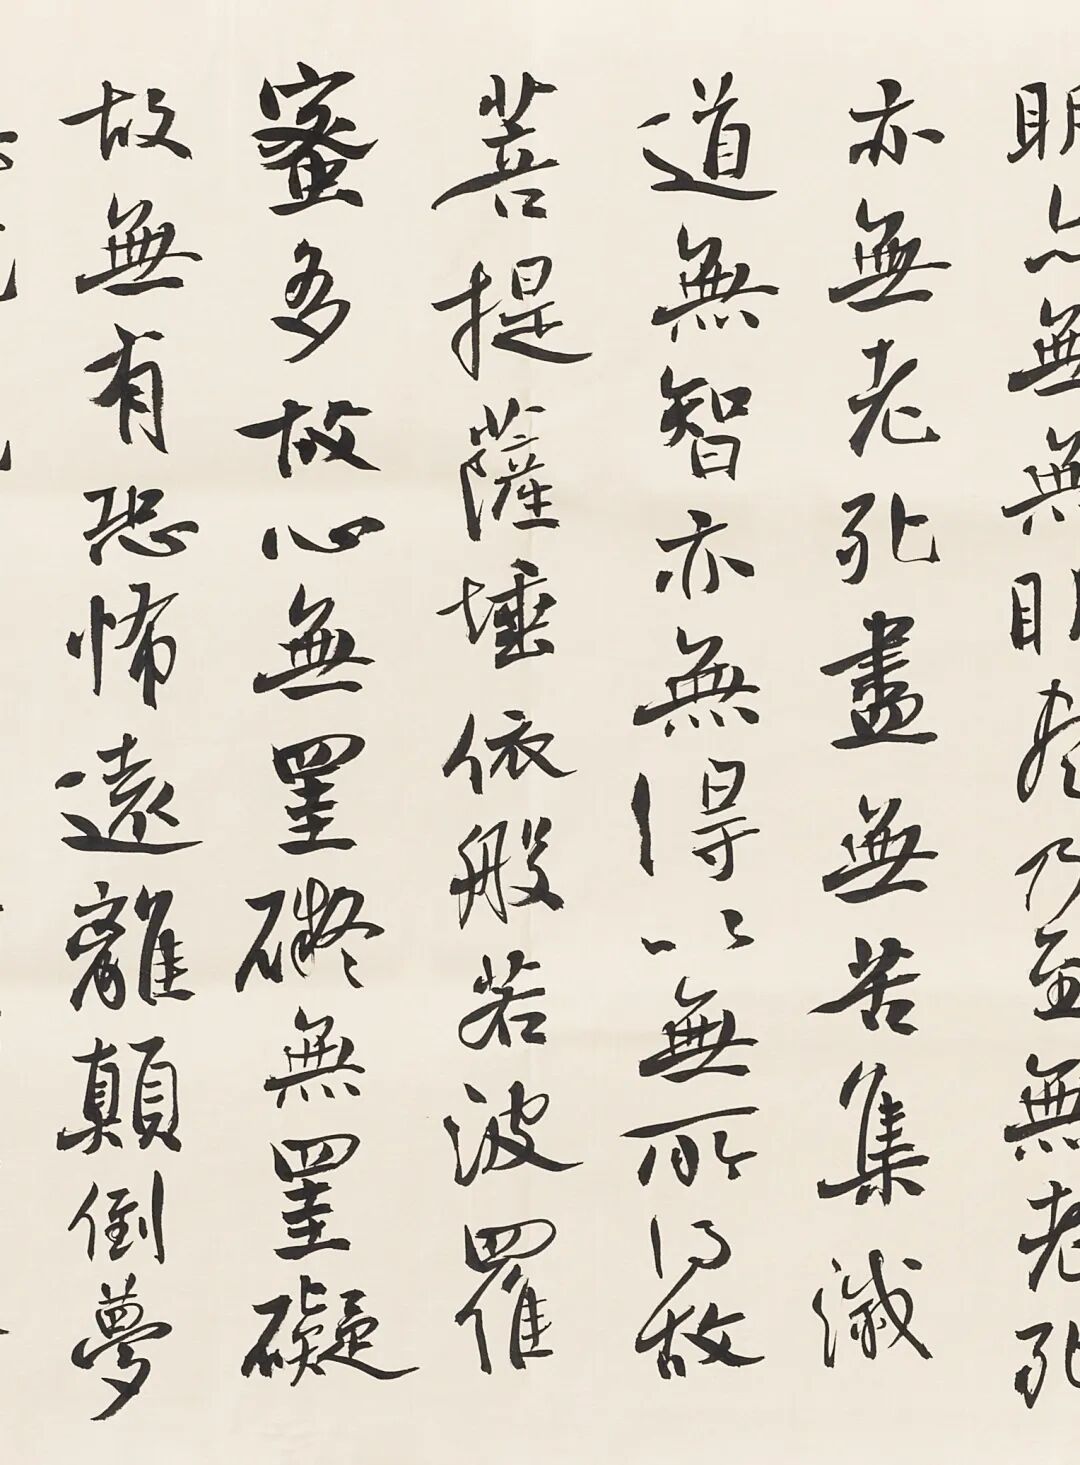 明亦無無明盡乃至無老死
亦無老死盡無苦集滅
道無智亦無得以無所得故
菩提薩埵依般若波羅
蜜多故心無罣礙無罣礙
故無有恐怖遠離顛倒夢